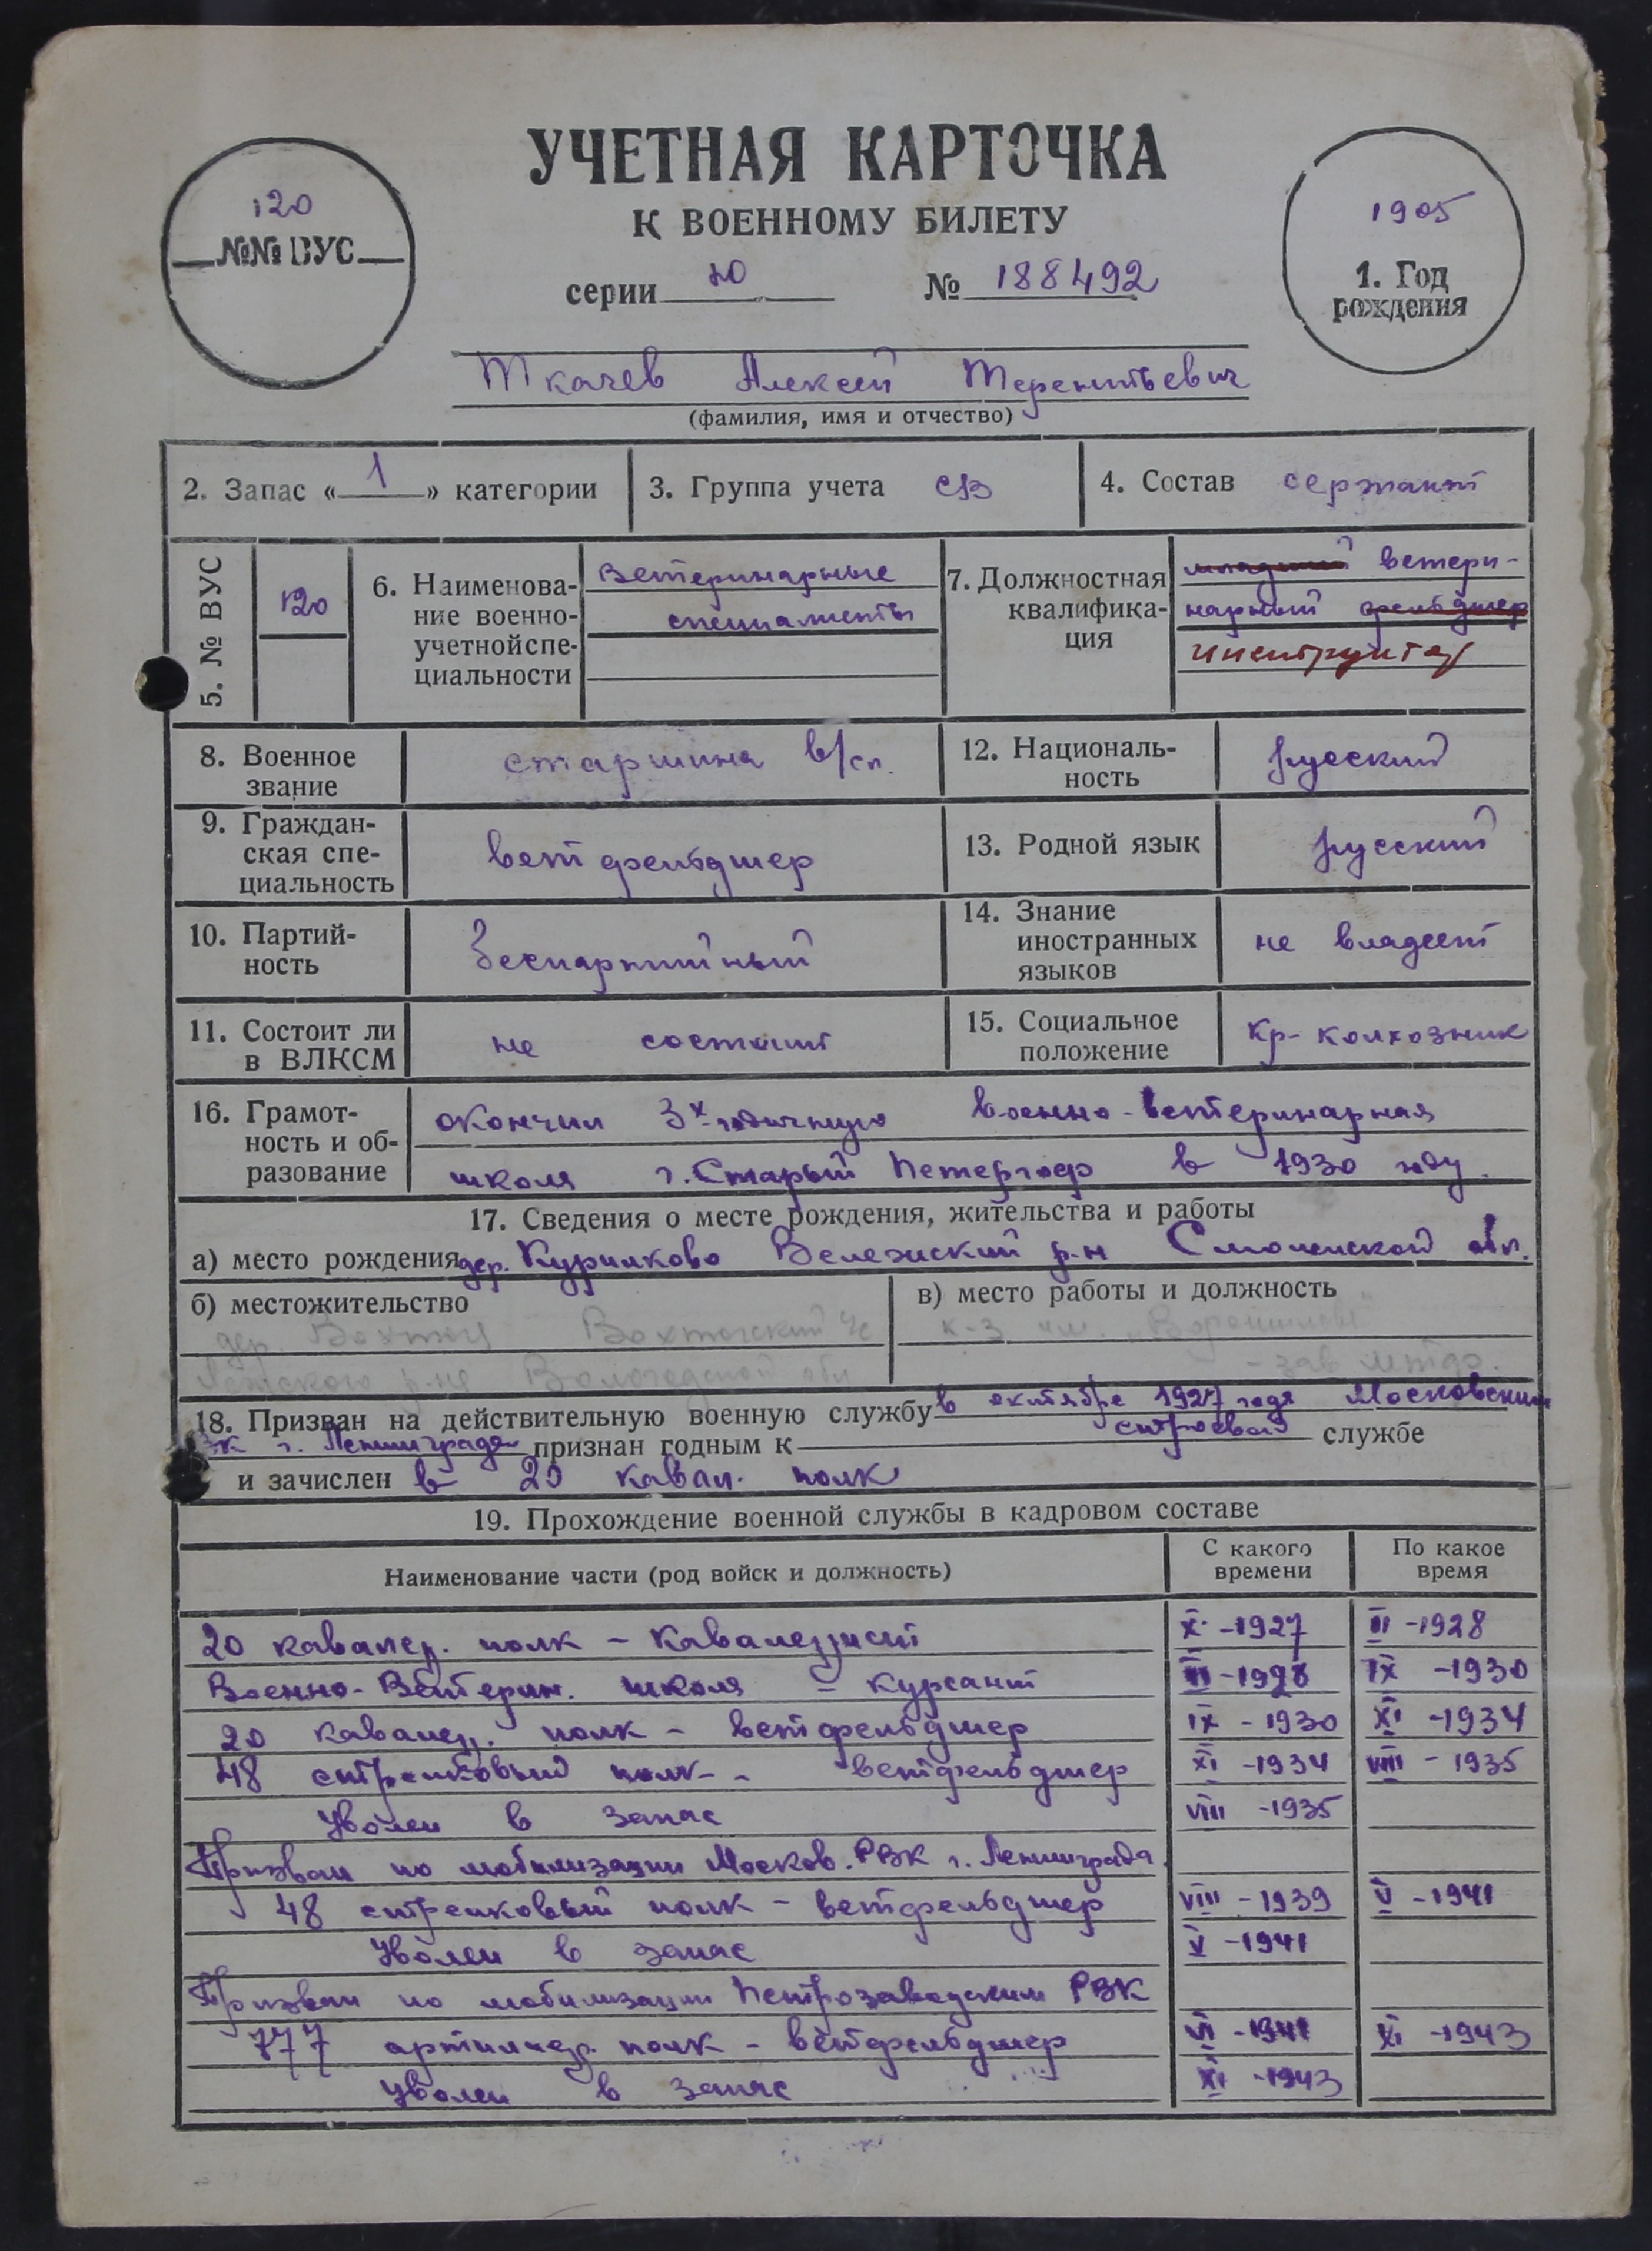 УЧЕТНАЯ КАРТОЧКА
К ВОЕННОМУ БИЛЕТУ
120
№№ ВУС
серии Ю № 188492
1905
1. Год
рождения
Ткачев Алексей Терентьевич
(фамилия, имя и отчество)
2. Запас « 1 » категории
3. Группа учета СВ
4. Состав сержант
5. № ВУС
120
6. Наименова-
ние военно-
учетной спе-
циальности
Ветеринарные
специалисты
7. Должностная
квалифика-
ция
младший ветери-
нарный фельдшер
инструктор
8. Военное
звание
старшина в/сл.
12. Националь-
ность
русский
9. Граждан-
ская спе-
циальность
вет фельдшер
13. Родной язык
русский
10. Партий-
ность
беспартийный
14. Знание
иностранных
языков
не владеет
11. Состоит ли
в ВЛКСМ
не состоит
15. Социальное
положение
кр-колхозник
16. Грамот-
ность и об-
разование
окончил 3х годичную военно-ветеринарная
школа г. Старый Петергоф в 1930 году.
17. Сведения о месте рождения, жительства и работы
а) место рождения дер. Курилково Вележский р-н Смоленской обл.
б) местожительство
дер. Вохтога Вохтогский с/с
р-на Вологодской обл
в) место работы и должность
к-з им. "Ворошилова"
- зав мтф.
18. Призван на действительную военную службу в октябре 1927 года Московским
РВК г. Ленинграда признан годным к строевой службе
и зачислен в 20 кавал. полк
19. Прохождение военной службы в кадровом составе
Наименование части (род войск и должность)
С какого
времени
По какое
время
20 кавалер. полк - кавалерист X-1927 III-1928
Военно-Ветерин. школа - курсант III-1928 IX-1930
20 кавалер. полк - ветфельдшер IX-1930 XI-1934
48 стрелковый полк - ветфельдшер XI-1934 VIII-1935
Уволен в запас VIII-1935
Призван по мобилизации Москов. РВК г. Ленинграда.
48 стрелковый полк - ветфельдшер VIII-1939 V-1941
Уволен в запас V-1941
Призван по мобилизации Петрозаводским РВК
777 артиллер. полк - ветфельдшер VI-1941 XI-1943
Уволен в запас XI-1943